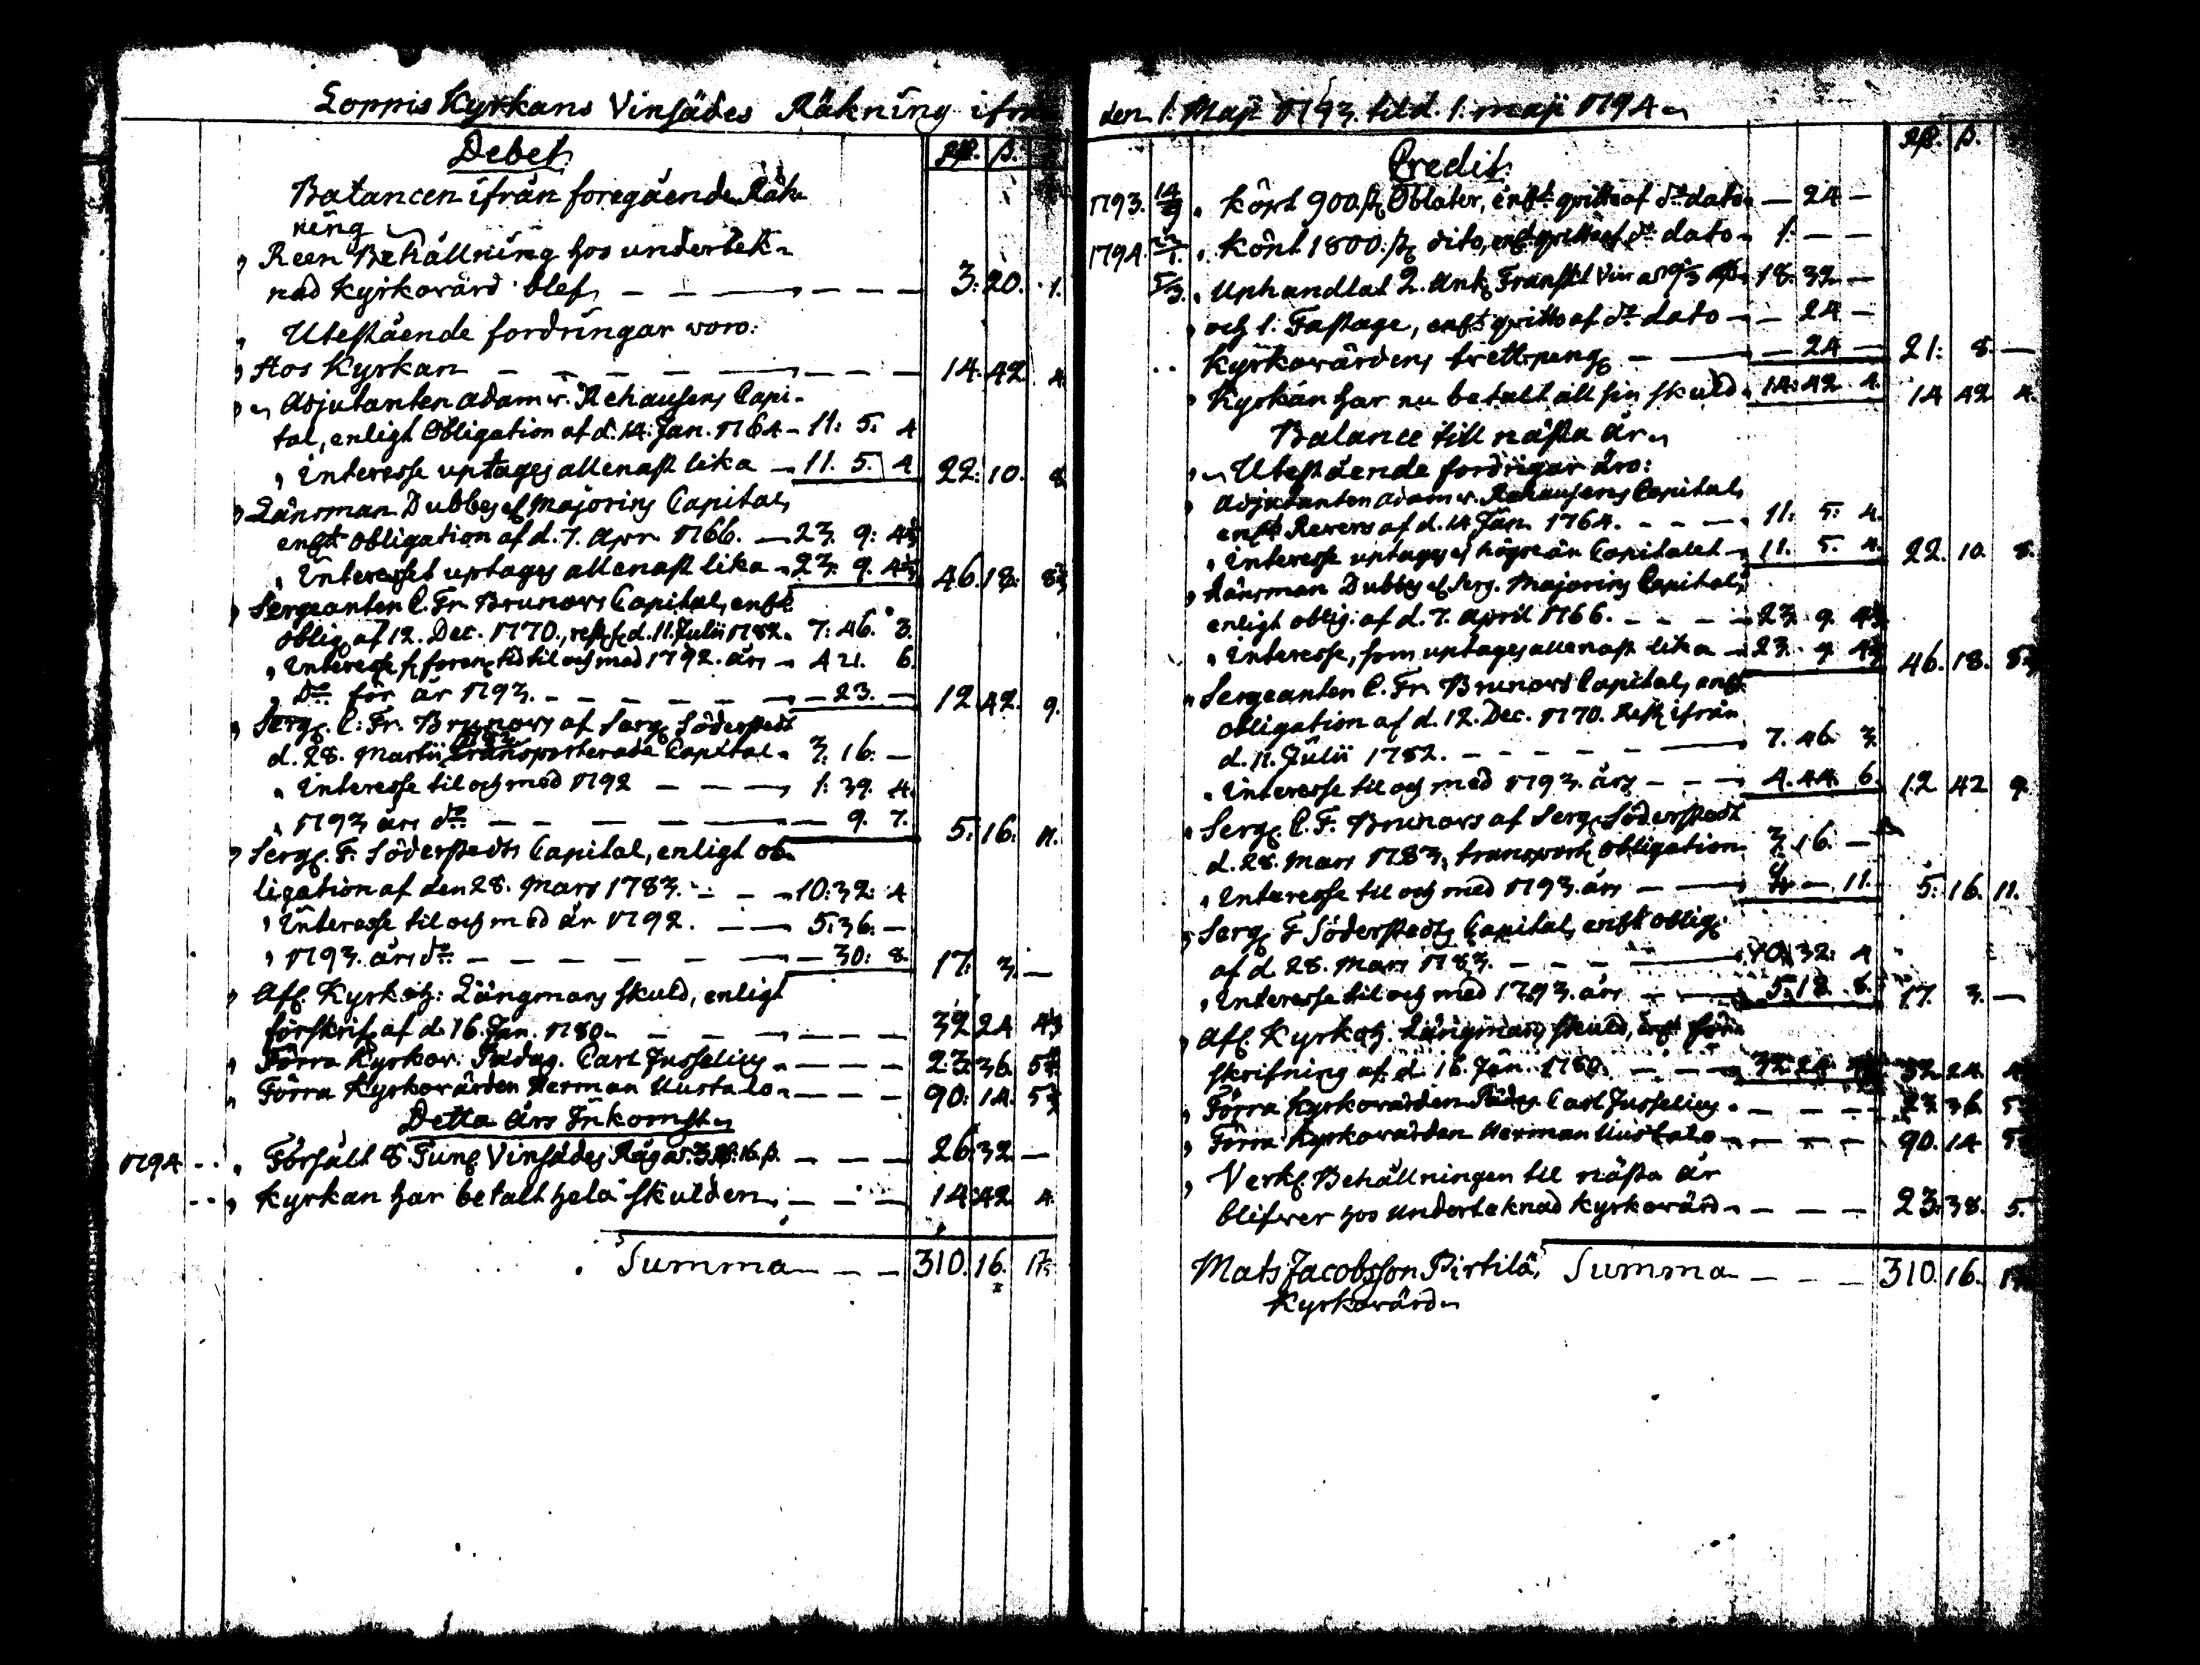 Loppis Kyrkans Vinsädes Räkning ifrån
Debet. Rß. ß.
Balancen ifrån foregående Räk-
ning
Reen Behållning hos undertek-
nad Kyrkovärd blef — — — 3: 20. 1.
Utestående fordringar woro:
Hos Kyrkan — — — 14: 42. 4.
Adjutanten Adam v. Rehausens Capi-
tal, enligt Obligation af d. 14. Jan. 1764 – 11: 5: 4
Interesse uptages allenast lika – 11. 5. 4 22: 10. 8
Länsman Dubbes Majorins Capital,
enlgt obligation af d. 7. Apr. 1766. — 23. 9: 4⅓
Interesset uptages allenast lika – 23: 9. 4⅓ 46. 18: 8⅔
Sergeanten C. Fr. Brunors Capital, enlt
oblig. af 12. Dec. 1770., d. 11. Julii 1782. 7: 46. 3.
Interesse tid til och med 1792. års – 4 21. 6.
do för år 1793. — — — – 23. – 12. 42. 9.
Serg. C: Fr. Brunors af Serg. Söderstedt
d. 28. Martii 1783 transporterade Capital. 3. 16. –
Interesse til och med 1792 — — 1: 39. 4.
1793 års do — — — – 9. 7. 5: 16. 11.
Serg. F. Söderstedts Capital, enligt ob-
ligation af den 28. Mars 1783. – – 10: 32: 4
Interesse til och med år 1792. — 5: 36. –
1793. års do — — — – 30: 8. 17: 3. –
Afl. Kyrkoh: Långmans skuld, enligt
förskrif. af d. 16. Jan. 1780. — — — 32 24 4⅓
Förra Kyrkov. Pædag. Carl Jusselius – — — 23: 36. 5
Förra Kyrkovärden Herman Uustalo – — — 90: 14. 5⅓
Detta års Inkomst
1794 Försålt 8. Tun. Vinsädes Råg a 3 Rß. 16. ß. — — 26: 32 –
Kyrkan har betalt hela skulden. — — 14: 42. 4.
Summa — — 310. 16. 1
den 1. Maji 1793. til d. 1. maji 1794
Credit. Rß. ß.
1793. 14/9 Köpt 900. st. Oblater, enlt qvitto af do dato – 24 –
1794. Köpt 1800. st. dito, enlt qvitto af do dato 1: – –
5/3. Uphandlat 2. Ank. Franskt Vin 18. 32 –
och 1: Fastage, enlt qvitto af do dato – – 24 –
Kyrkovärdens trettpeng. — – 24 – 21: 8. –
Kyrkan har nu betalt all sin skuld. 14: 42 4. 14 42 4.
Balance till nästa år
Utestående fordrigar äro:
Adjutanten Adam v. Rehausens Capital,
enlt Revers af d. 14 Jan. 1764. – – – 11: 5: 4.
Interesse uptages ej högre än Capitalet – 11. 5. 4. 22. 10. 8.
Länsman Dubbes Serg. Majorins Capital,
enligt oblig. af d. 7. April 1766. – – – 23. 9. 4⅓
Interesse, som uptages allenast lika – 23. 9. 4⅓ 46. 18. 8⅔
Sergeanten C. Fr. Brunors Capital, enlt
obligation af d. 12. Dec. 1770. Rest. ifrån
d. 11. Julii 1782. – – – – 7. 46. 3.
Interesse til och med 1793. års – – 4. 44. 6. 12 42 9.
Serg. C. F. Brunors af Serg. Söderstedt
d. 28. Mars 1783. transport. obligation 3. 16. –
Interesse til och med 1793. års — — – 11. 5: 16. 11.
Serg. F Söderstedts Capital, enlt oblig.
af d. 28. Mars 1783. – – – 10. 32: 4
Interesse til och med 1793. års — 5: 18. 8. 17. 3. –
Afl. Kyrkoh. Långmans skuld, enlt för-
skrifning af d. 16. Jan. 1780. – – – 32. 24. 32. 24. 4
Förra Kyrkovärden Pædag. Carl Jusselius – – – 23. 36. 5
Förra Kyrkovärden Herman Uustalo – – – 90. 14 5
Verkl. Behållningen til nästa år
blifwer hos undertecknad Kyrkovärd. — — 23. 38. 5.
Mats Jacobsson Pirtilä, Summa — — 310. 16.
Kyrkovärd